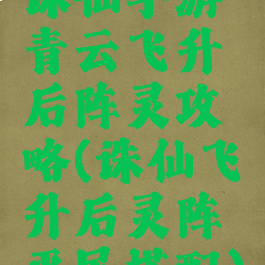 诛仙手游
青云飞升
后阵灵攻
略(诛仙飞
升后灵阵